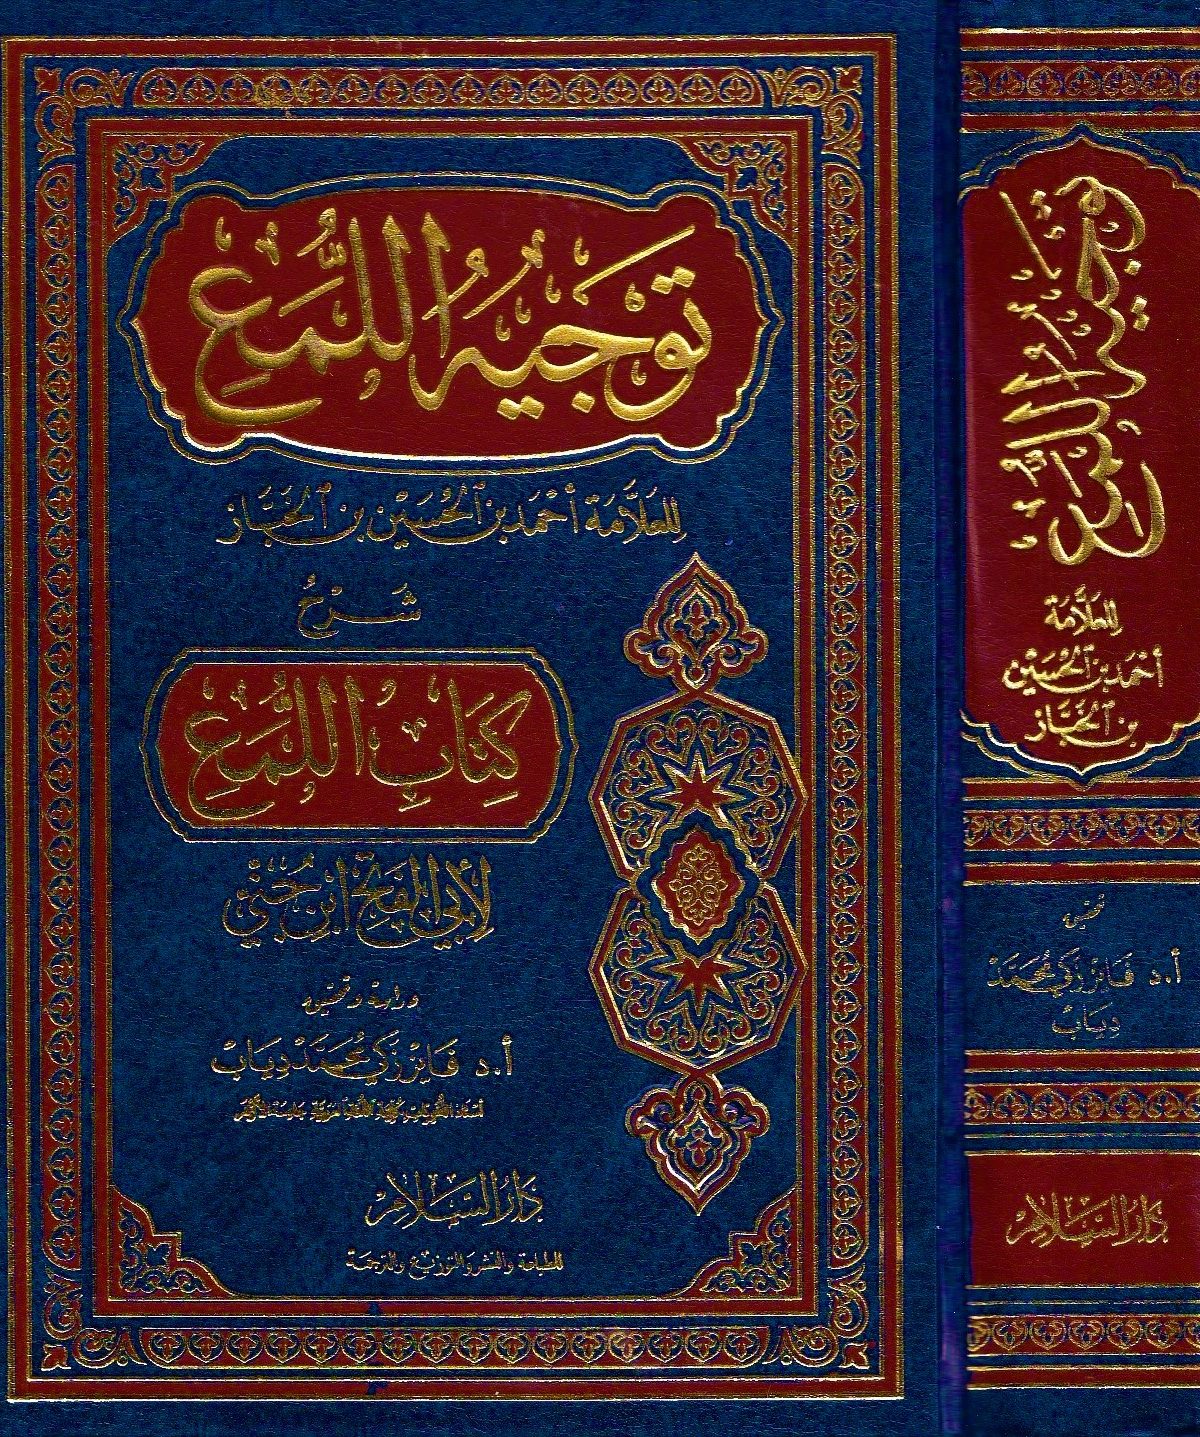 تَوجِيهُ اللُّمَعِ
للعلّامة أحمد بن الحُسَيْن بن الخبّاز
شَرحُ
كِتَابِ اللُّمَعِ
لأبي الفتح ابن جني
دراسة وتحقيق
أ.د فَايز زكي محمّد دِيَابْ
أستاذ اللغويات بكلية اللغة العربية بجامعة الأزهر
دَارُ السَّلَام
للطباعة والنشر والتوزيع والترجمة
تَوجِيهُ اللُّمَعِ
للعلّامة
أحمد بن الحُسَيْن
بن الخبّاز
تحقيق
أ.د فَايز زكي محمّد
دِيَابْ
دَارُ السَّلَام